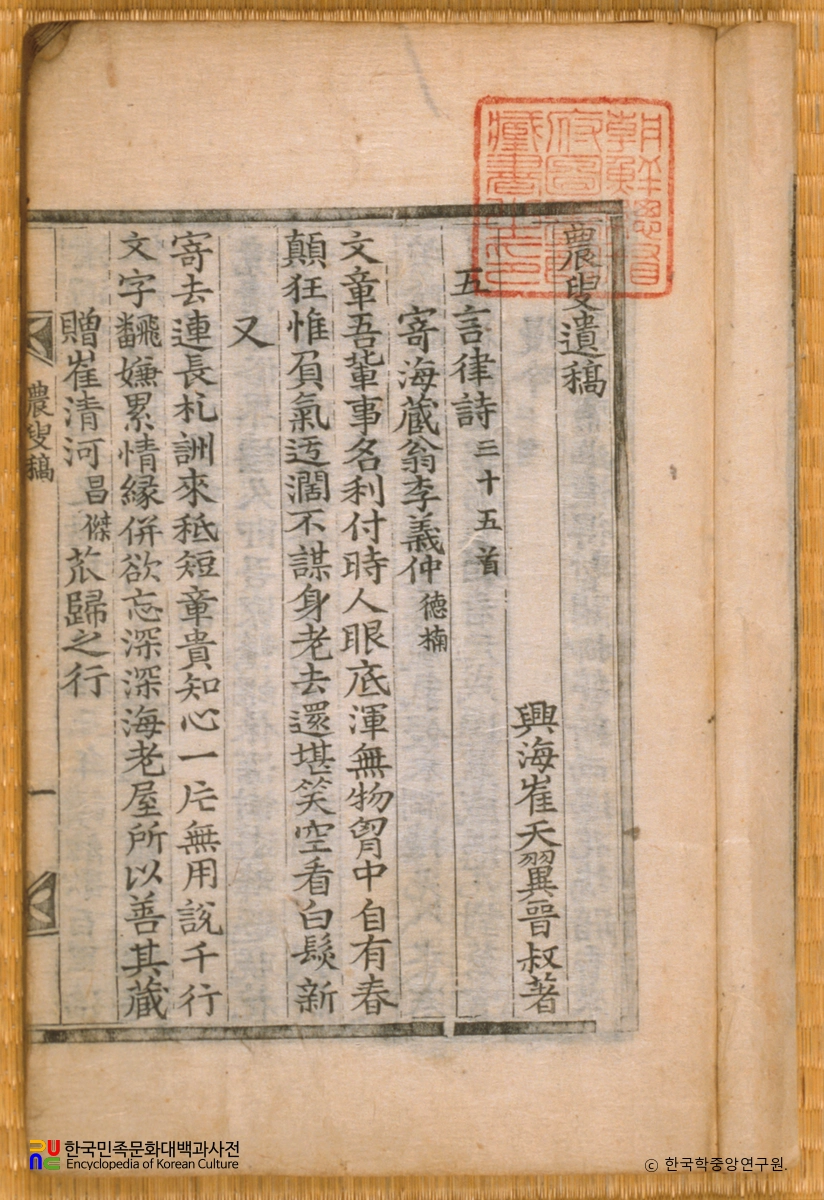 朝鮮總督
府圖書館
藏書之印
農叟遺稿
興海崔天翼晉叔著
五言律詩三十五首
寄海蔵翁李義仲德楠
文章吾輩事名利付時人眼底渾無物胷中自有春
顛狂惟負氣迃濶不謀身老去還堪笑空看白髮新
又
寄去連長札詶來秪短章貴知心一片無用說千行
文字飜嫌累情緣併欲忘深深海老屋所以善其蔵
贈崔清河昌傑苽歸之行
農叟稿 一
한국민족문화대백과사전
Encyclopedia of Korean Culture
© 한국학중앙연구원.